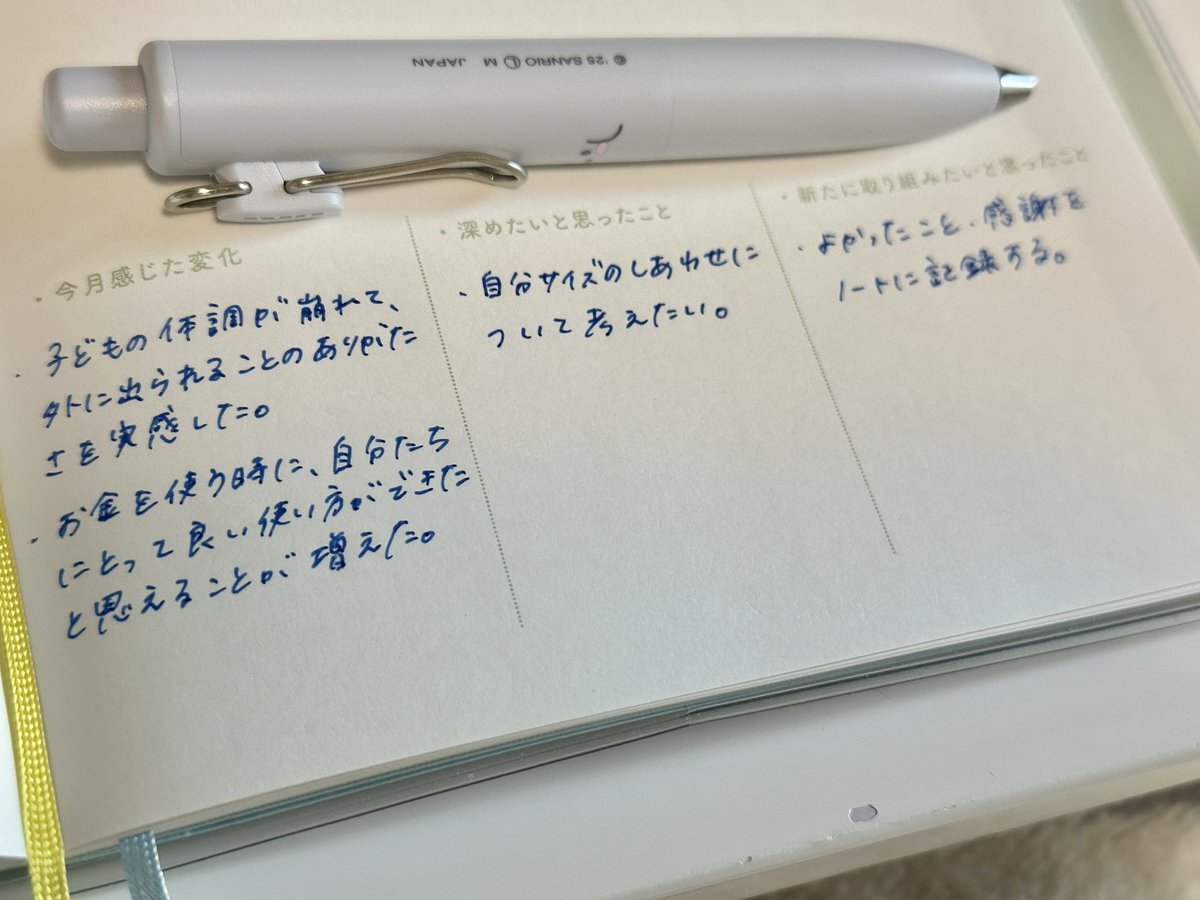 © '25 SANRIO Ⓛ M JAPAN
・今月感じた変化
・子どもの体調が崩れて、
外に出られることのありがた
さを実感した。
・お金を使う時に、自分たち
にとって良い使い方ができた
と思えることが増えた。
・深めたいと思ったこと
・自分サイズのしあわせに
ついて考えたい。
・新たに取り組みたいと思ったこと
・よかったこと・感謝を
ノートに記録する。